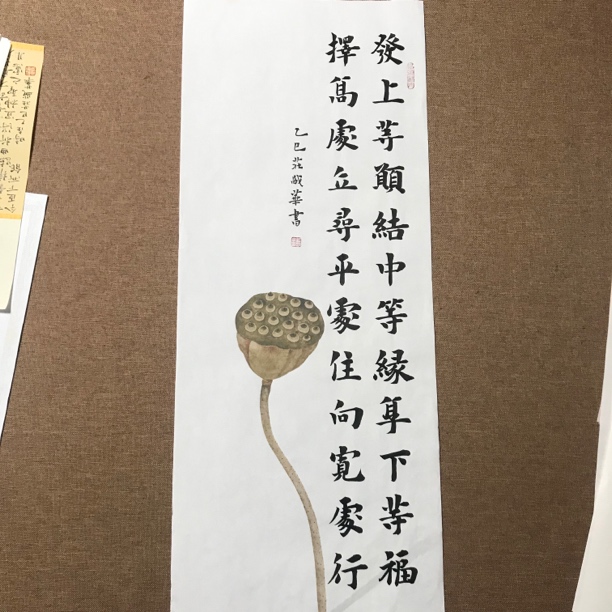 發上等願結中等緣享下等福
擇高處立尋平處住向寬處行
乙巳莊書